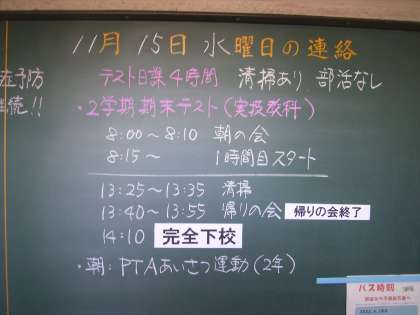 11月 15日 水曜日の連絡
症予防
継続!!
テスト日課4時間 清掃あり 部活なし
・2学期期末テスト(実技教科)
8:00～8:10 朝の会
8:15～ 1時間目スタート
13:25～13:35 清掃
13:40～13:55 帰りの会 帰りの会終了
14:10 完全下校
・朝:PTAあいさつ運動(2年)
バス時刻